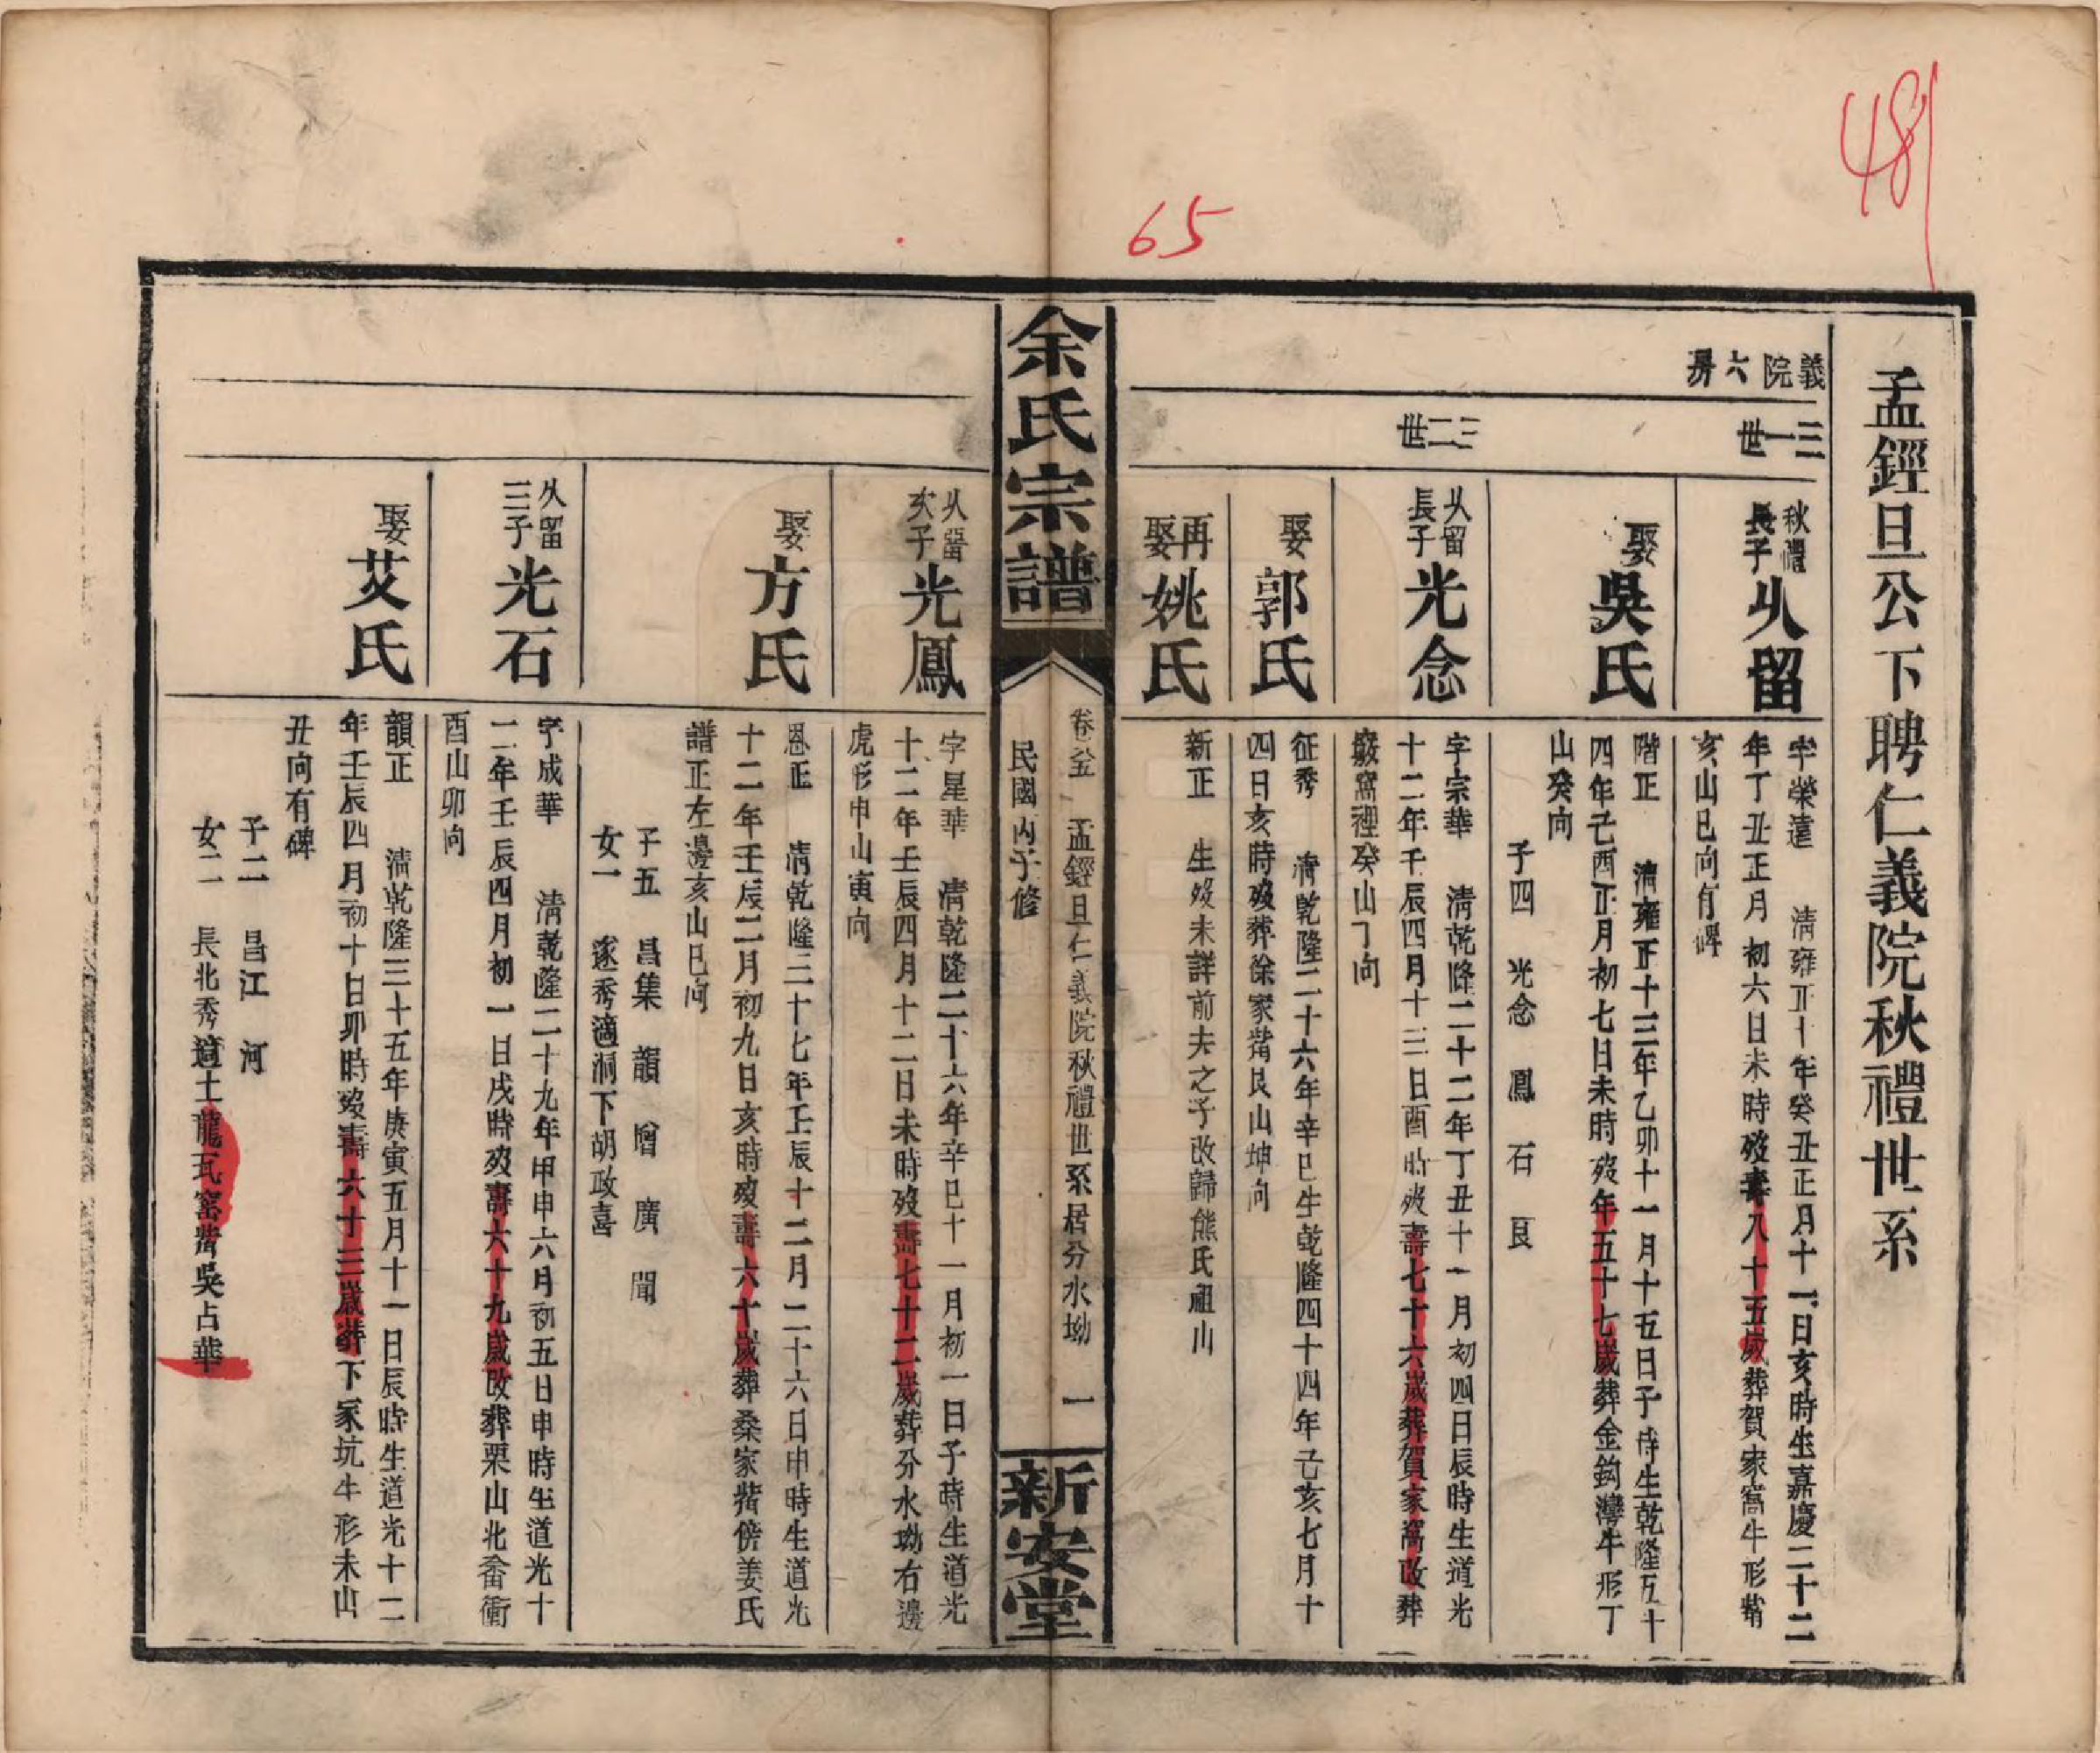 481
65
孟鏗旦公下聘仁義院秋禮世系
義院六房
三一世
秋禮長子
久留
字榮遠 清雍正十年癸丑正月十一日亥時生嘉慶二十二
年丁丑正月初六日未時歿壽八十五歲葬賀家窩牛形嘴
亥山巳向有碑
娶吳氏
階正 清雍正十三年乙卯十一月十五日子時生乾隆五十
四年己酉正月初七日未時歿年五十七歲葬金鈎灣牛形丁
山癸向
子四 光念 鳳 石 艮
三二世
久留長子
光念
字宗華 清乾隆二十二年丁丑十一月初四日辰時生道光
十二年壬辰四月十三日酉時歿壽七十六歲葬賀家窩改葬
窩裡癸山丁向
娶郭氏
征秀 清乾隆二十六年辛巳生乾隆四十四年己亥七月十
四日亥時歿葬徐家嘴艮山坤向
再娶姚氏
新正 生歿未詳前夫之子改歸熊氏祖山
余氏宗譜
卷叁五 孟鏗旦仁義院秋禮世系居分水坳 一
民國丙子修
新安堂
久留次子
光鳳
字星華 清乾隆二十六年辛巳十一月初一日子時生道光
十二年壬辰四月十二日未時歿壽七十二歲葬分水坳右邊
虎形申山寅向
娶方氏
恩正 清乾隆三十七年壬辰十二月二十六日申時生道光
十二年壬辰二月初九日亥時歿壽六十歲葬桑家嘴傍姜氏
譜正左邊亥山巳向
子五 昌集 韻 贈 廣 聞
女一 逐秀適洞下胡政喜
久留三子
光石
字成華 清乾隆二十九年甲申六月初五日申時生道光十
二年壬辰四月初一日戌時歿壽六十九歲改葬栗山北畬衝
酉山卯向
娶艾氏
韻正 清乾隆三十五年庚寅五月十一日辰時生道光十二
年壬辰四月初十日卯時歿壽六十三歲葬下家坑牛形未山
丑向有碑
子二 昌江 河
女二 長北秀適土龍瓦窰嘴吳占華